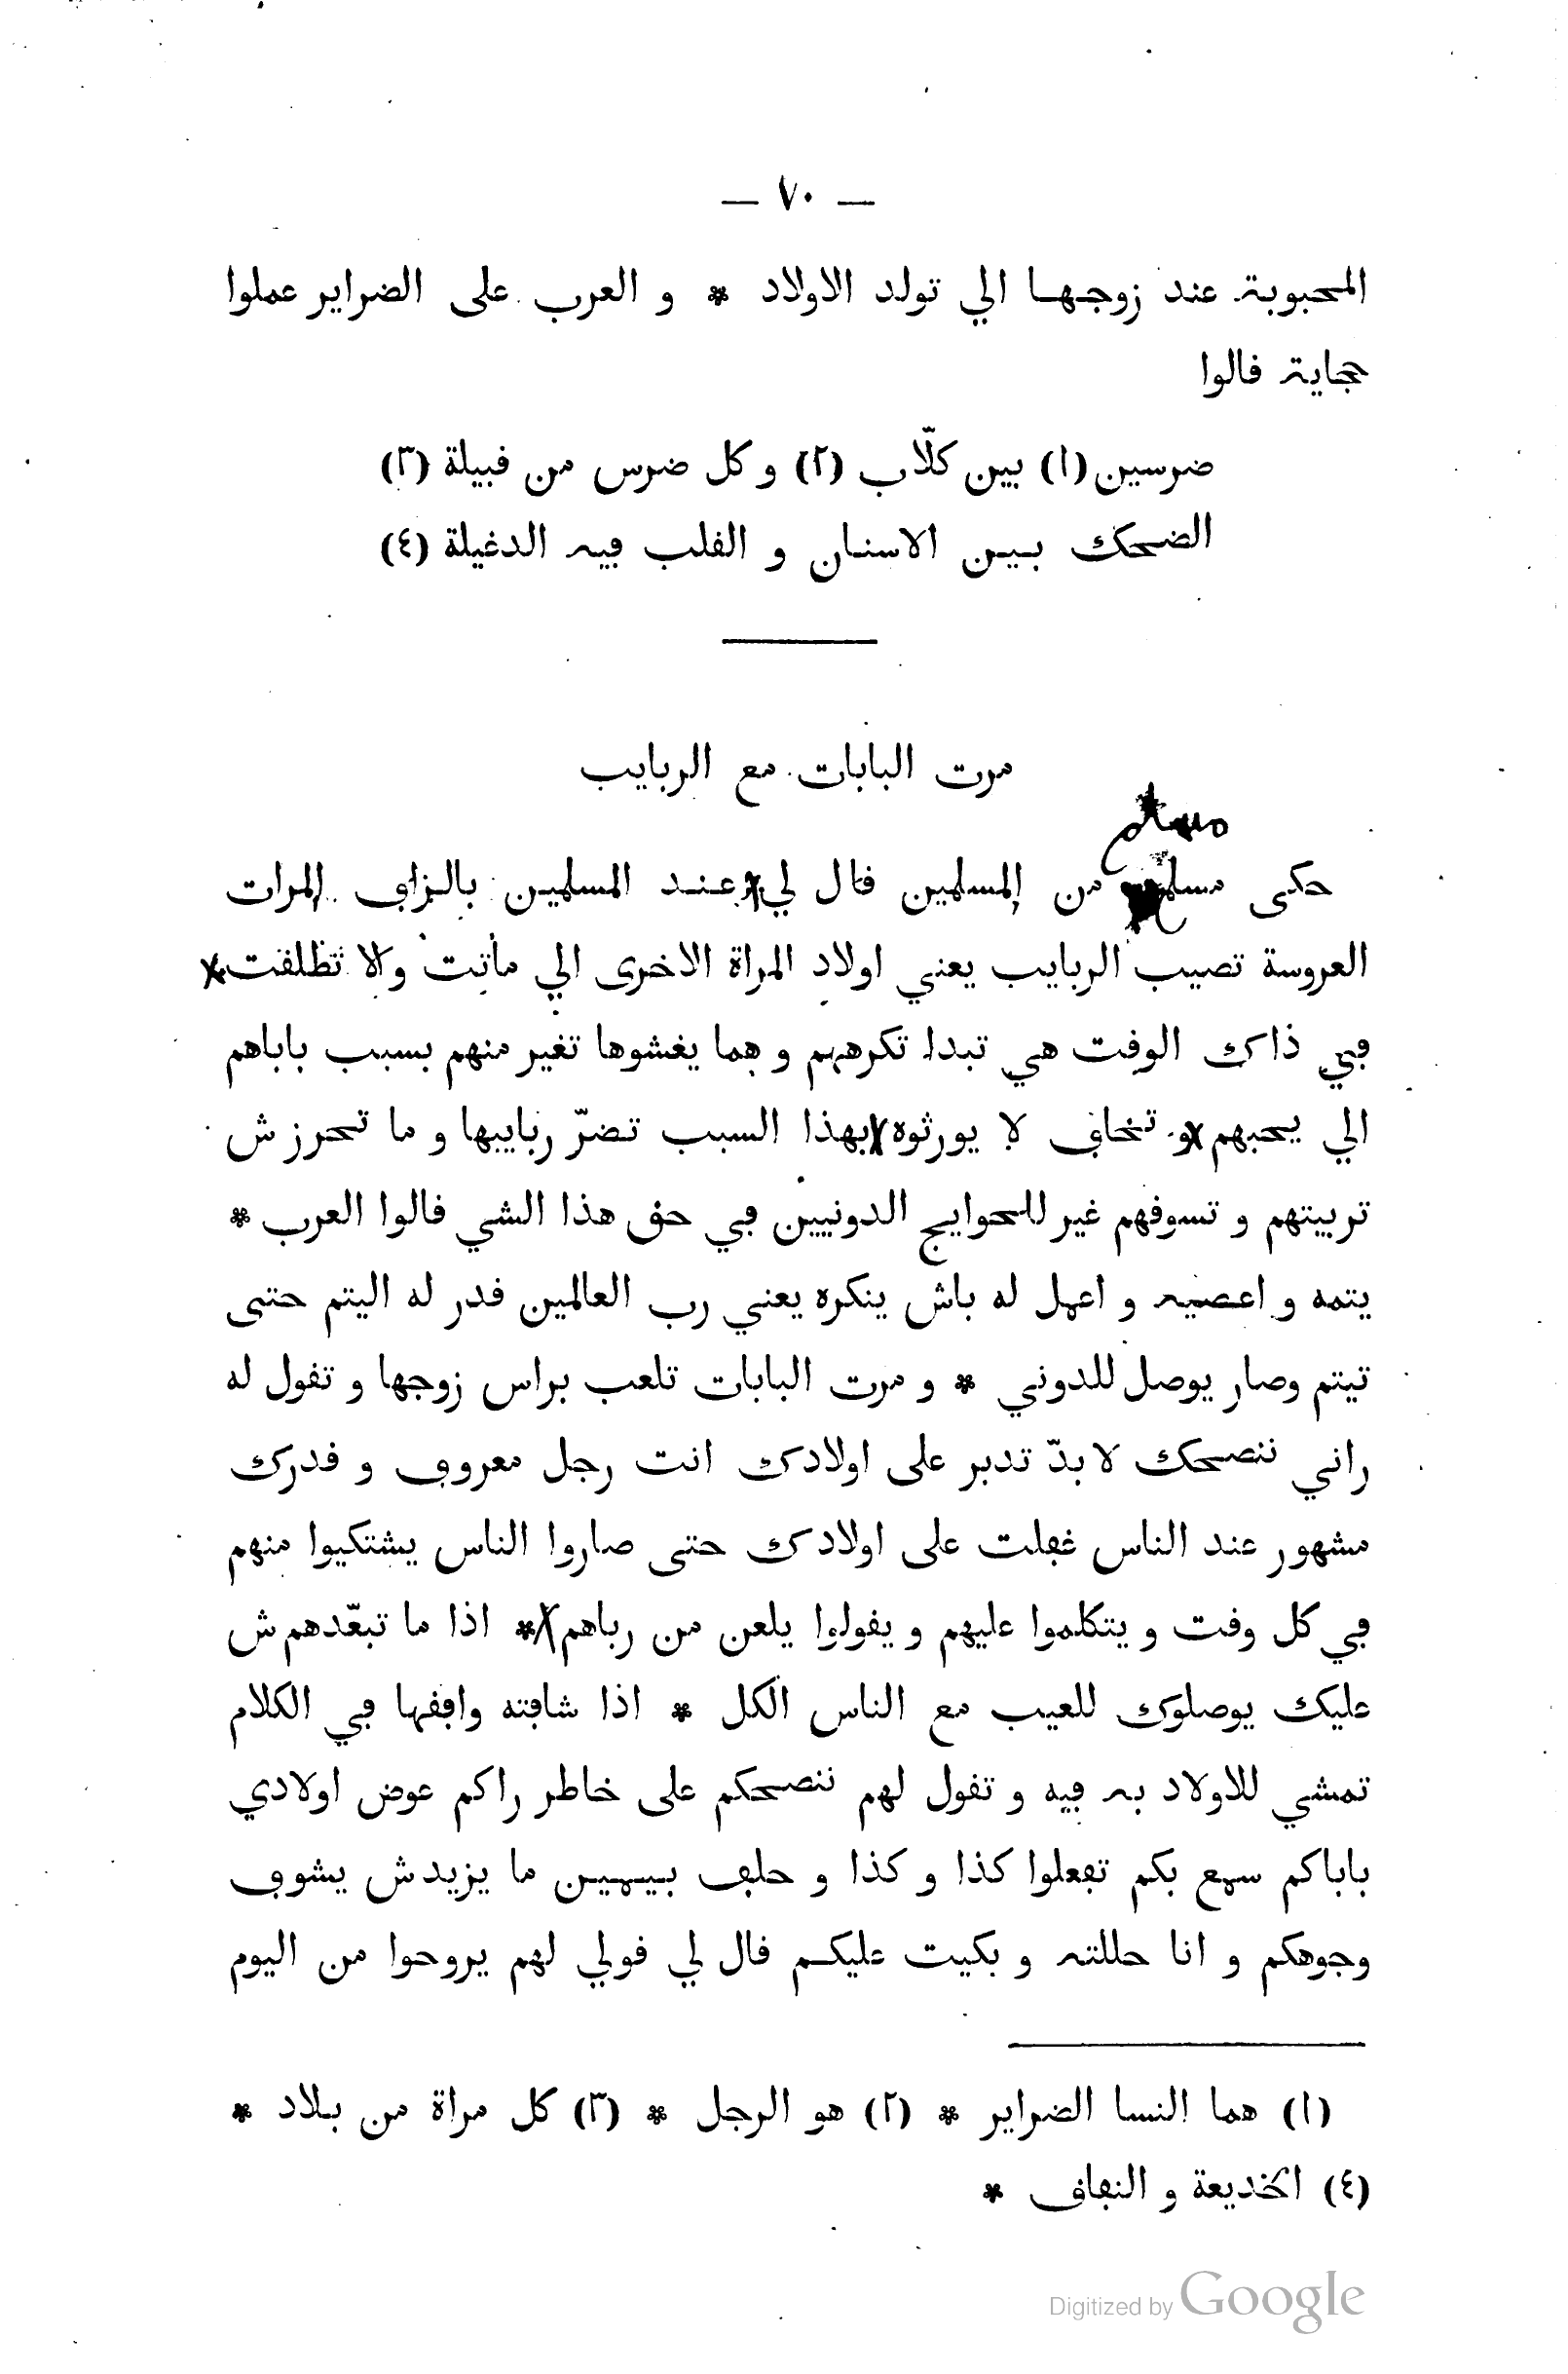 — ٧٠ —
المحبوبة عند زوجها الي تولد الاولاد * و العرب على الضراير عملوا
حجاية ڧالوا
ضرسين (١) بين كلّاب (٢) و كل ضرس من ڧبيلة (٣)
الضحك بين الاسنان و الڧلب ڢيه الدغيلة (٤)
مرت البابات مع الربايب
مسلم
حكى مسلم من المسلمين ڧال لي عند المسلمين بالزاڢ المرات
العروسة تصيب الربايب يعني اولاد المراة الاخرى الي ماتت ولا تظلڧت
ڢي ذاك الوڧت هي تبدا تكرههم و هما يغشوها تغير منهم بسبب باباهم
الي يحبهم و تخاڢ لا يورثوه بهذا السبب تضرّ ربايبها و ما تحرز ش
تربيتهم و تسوڧهم غير للحوايج الدونيين ڢي حڧ هذا الشي ڧالوا العرب *
يتمه و اعصيه و اعمل له باش ينكره يعني رب العالمين ڧدر له اليتم حتى
تيتم وصار يوصل للدوني * و مرت البابات تلعب براس زوجها و تڧول له
راني ننصحك لا بدّ تدبر على اولادك انت رجل معروڢ و ڧدرك
مشهور عند الناس غڢلت على اولادك حتى صاروا الناس يشتكيوا منهم
ڢي كل وڧت و يتكلموا عليهم و يڧولوا يلعن من رباهم * اذا ما تبعّدهم ش
عليك يوصلوك للعيب مع الناس الكل * اذا شاڢته واڢڧها ڢي الكلام
تمشي للاولاد به ڢيه و تڧول لهم ننصحكم على خاطر راكم عوض اولادي
باباكم سمع بكم تڢعلوا كذا و كذا و حلڢ بيمين ما يزيدش يشوڢ
وجوهكم و انا حللته و بكيت عليكم ڧال لي ڧولي لهم يروحوا من اليوم
(١) هما النسا الضراير * (٢) هو الرجل * (٣) كل مراة من بلاد *
(٤) الخديعة و النڢاڧ *
Digitized by Google